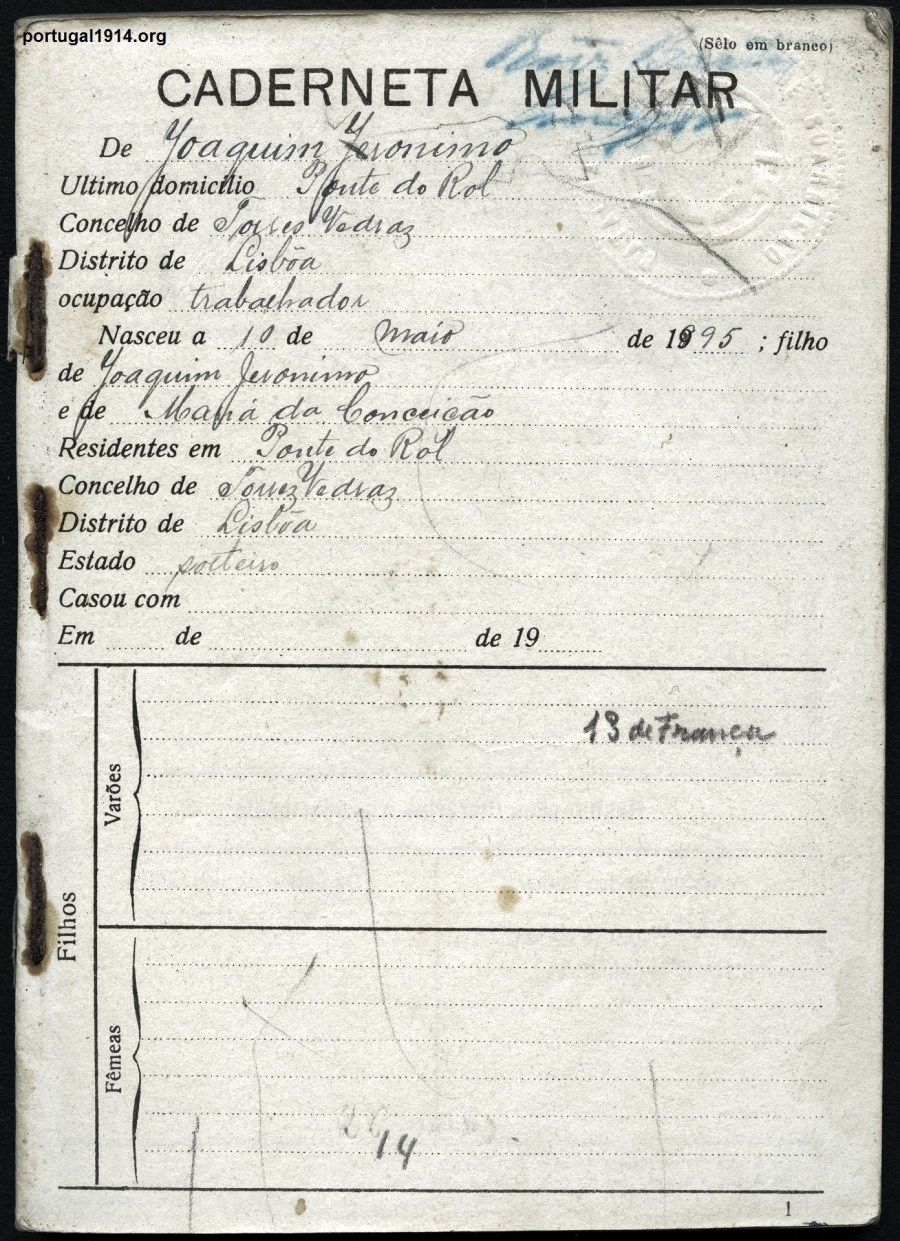 portugal1914.org
(Sêlo em branco)
CADERNETA MILITAR
De Joaquim Jeronimo
Ultimo domicilio Ponte do Rol
Concelho de Torres Vedraz
Distrito de Lisbôa
ocupação trabalhador
Nasceu a 10 de maio de 1895 ; filho
de Joaquim Jeronimo
e de Maria da Conceição
Residentes em Ponte do Rol
Concelho de Torrez Vedraz
Distrito de Lisbôa
Estado solteiro
Casou com
Em de de 19
Filhos
Varões
13 de França
Fêmeas
14
1